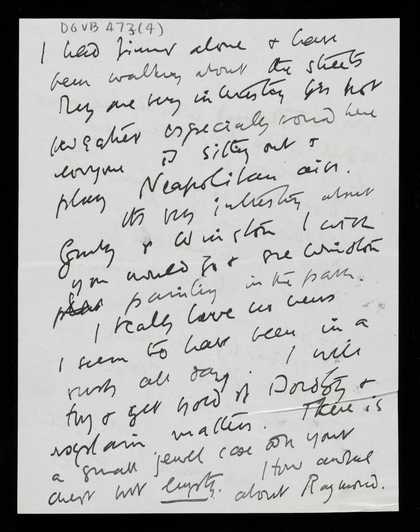 DGVB A73(4)
I had dinner alone & have
been walking about the streets
They are very interesting this hot
weather especially round here
everyone is sitting out &
play Neapolitan airs.
Its very interesting about
& Winston I wish
you would go & see Winston
painting in the park.
I really have no news
I seem to have been in a
rush all day. I will
try & get hold of Dorothy &
explain matters. There is
a small jewel case on your
chest but empty. How awful
about Raymond.